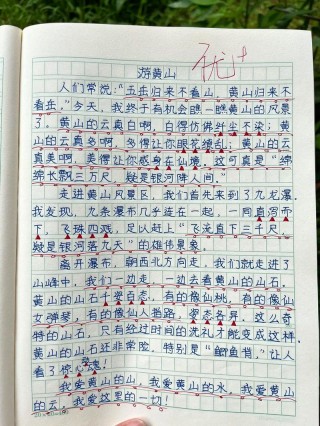 优+
游黄山
人们常说:“五岳归来不看山,黄山归来不
看岳。”今天,我终于有机会瞧一瞧黄山的风景
了。黄山的云真白啊,白得仿佛纤尘不染;黄
山的云真多啊,多得让你眼花缭乱;黄山的云
真美啊,美得让你感身在仙境。这可真是“绵
绵长飘三万尺,疑是银河降人间。”
走进黄山风景区,我们首先来到了九龙瀑。
我发现,九条瀑布几乎连在一起,一同直泻而
下,飞珠四溅,足以赶上“飞流直下三千尺,
疑是银河落九天”的雄伟景象。
离开瀑布,朝西北方向走,我们就走进了
山峰中,我们一边走,一边去看黄山的山石。
黄山的山石千姿百态,有的像仙桃,有的像仙
女弹琴,有的像仙人指路,姿态各异。这么奇
特的山石,只有经过时间的洗礼才能变成这样。
黄山的山石还非常险,特别是“鲫鱼背,”让人
看了惊心魂!
我爱黄山的山,我爱黄山的水,我爱黄山
的云,我爱这里的一切!